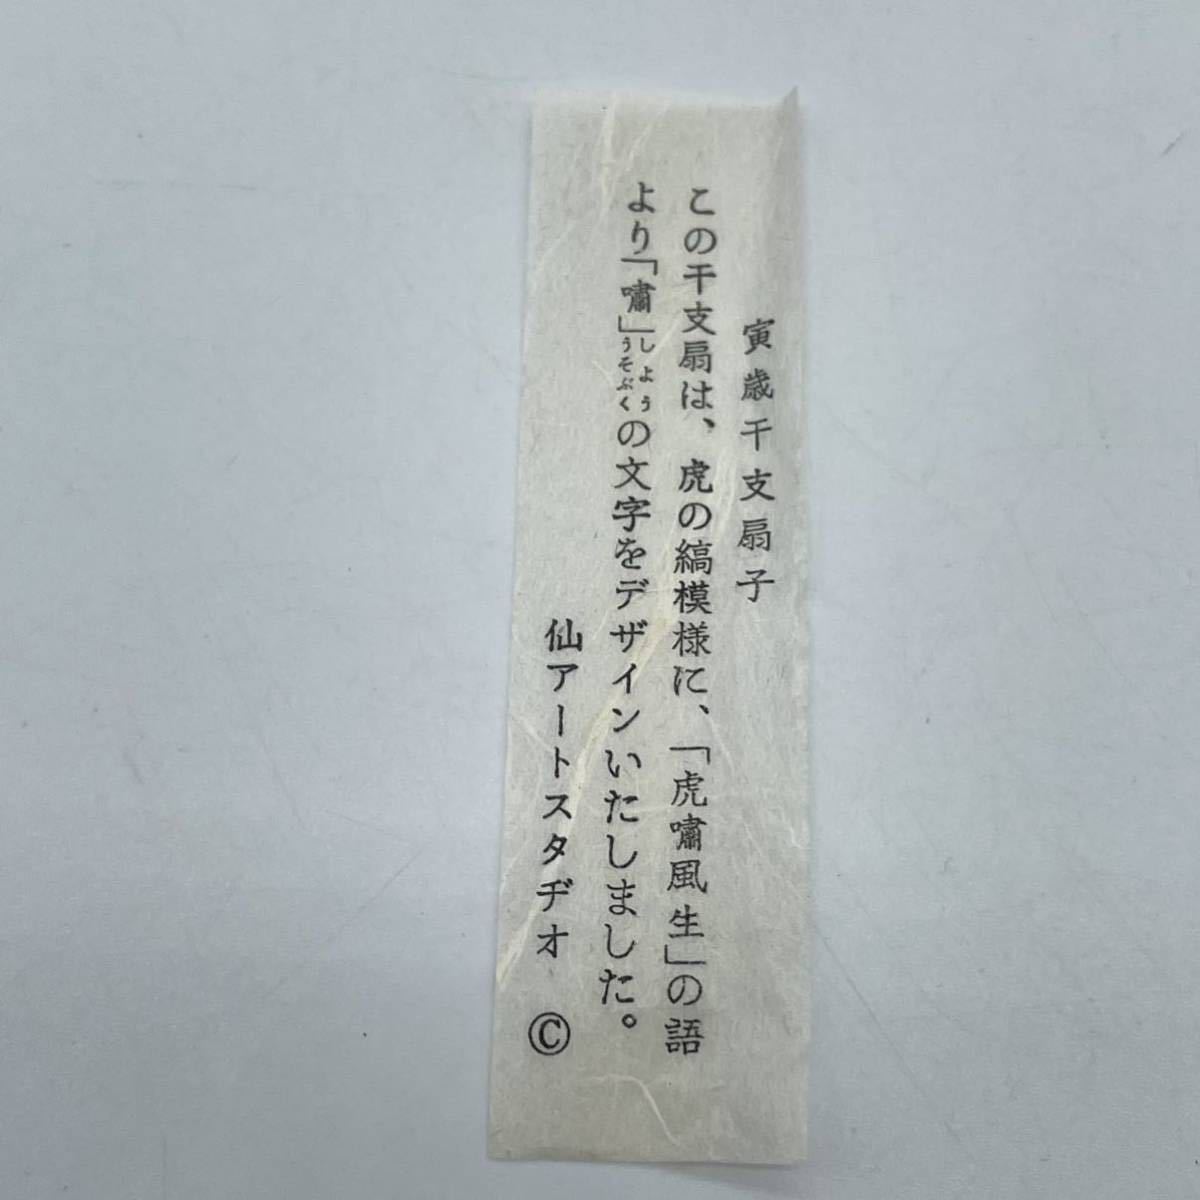 寅歳干支扇子
この干支扇は、虎の縞模様に、「虎嘯風生」の語
より「嘯」しようの文字をデザインいたしました。
うそぶく
仙アートスタヂオ Ⓒ